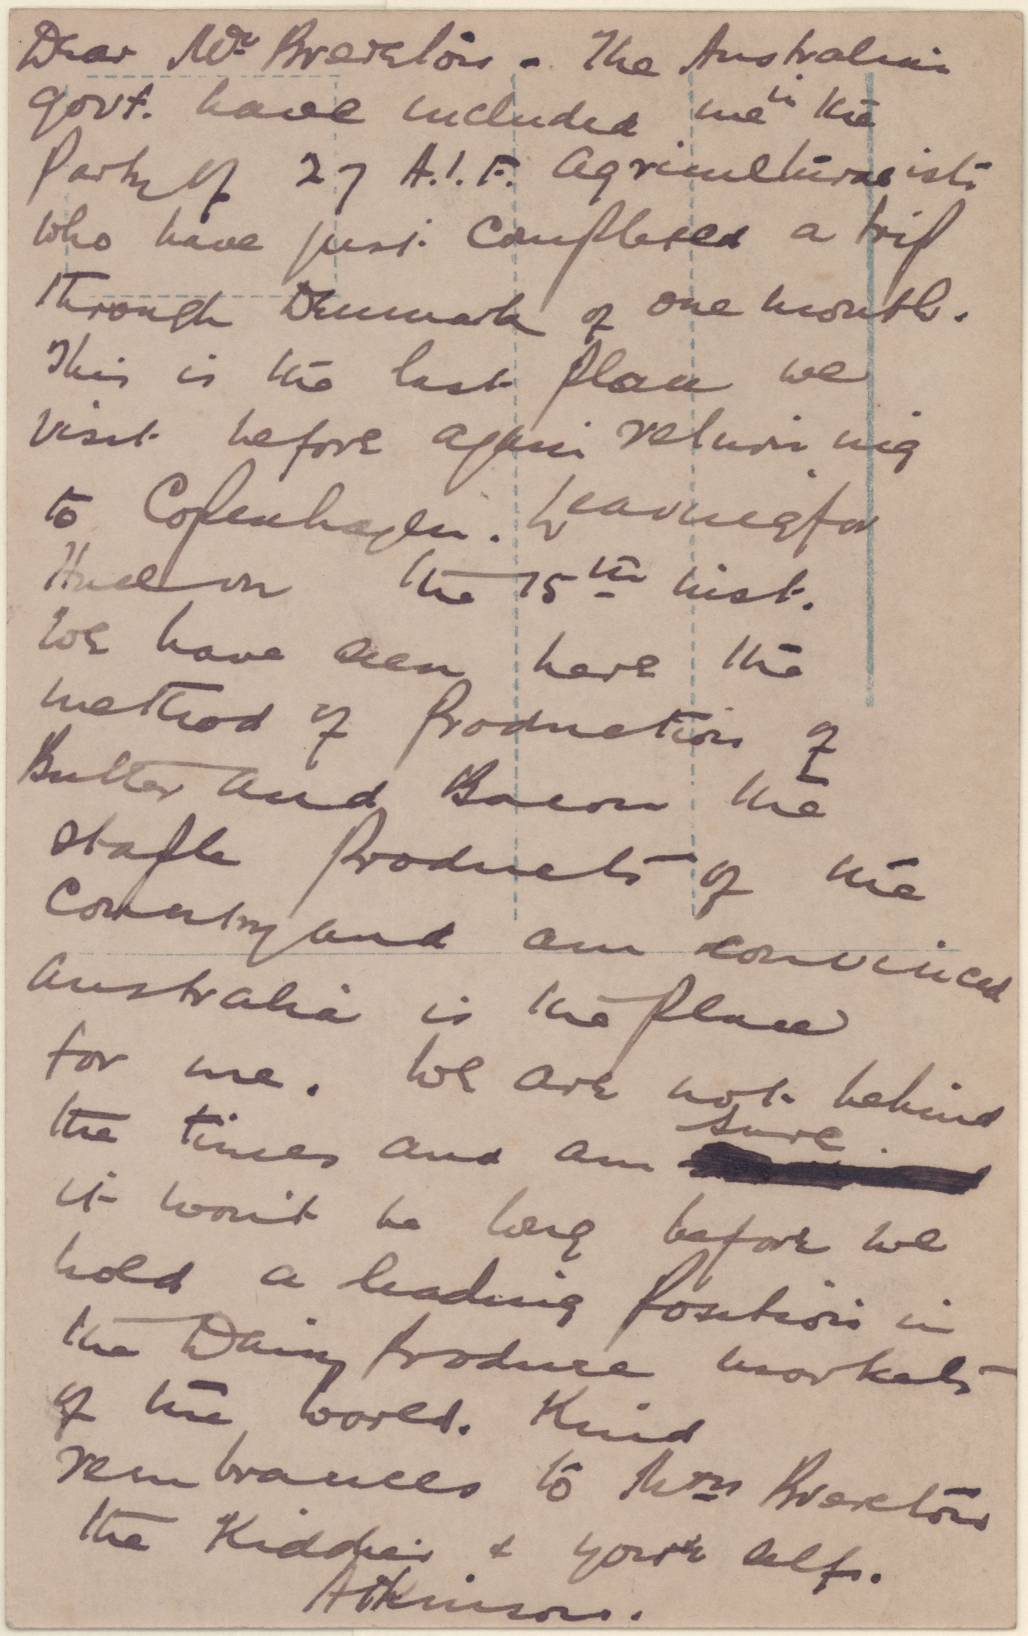 Dear Mr Brereton - The Australian
Govt. have included me in the
Party of 27 A.I.F. Agriculturalists
who have just completed a trip
through Denmark of one month.
This is the last place we
visit before again returning
to Copenhagen. Leaving for
Hull on the 15th inst.
We have seen here the
method of production of
Butter and Bacon the
staple products of the
Country and am convinced
Australia is the place
for me. We are not behind
the times and am sure
it won't be long before we
hold a leading position in
the Dairy produce markets
of the world. Kind
rembrances to Mrs Brereton
the Kiddies & your self.
Atkinson.